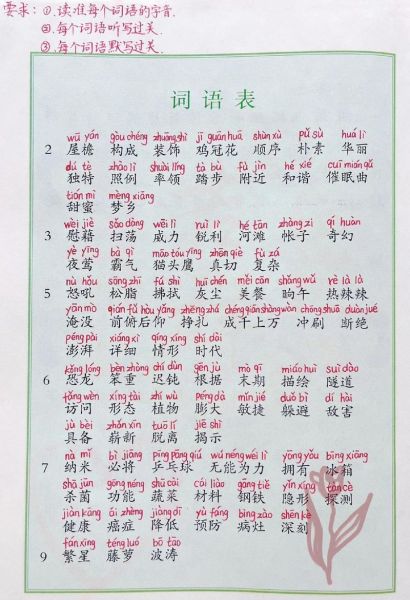 要求：①.读准每个词语的字音.
②.每个词语听写过关.
③.每个词语默写过关.
词语表
wū yán gòu chéng zhuāng shì jī guān huā shùn xù pǔ sù huá lì
2 屋檐 构成 装饰 鸡冠花 顺序 朴素 华丽
dú tè zhào lì shuài lǐng tà bù fù jìn hé xié cuī mián qǔ
独特 照例 率领 踏步 附近 和谐 催眠曲
tián mì mèng xiāng
甜蜜 梦乡
wèi jiè sǎo dàng wēi lì ruì lì hé tān zhàng zi qí huàn
3 慰藉 扫荡 威力 锐利 河滩 帐子 奇幻
yè yīng bà qì māo tóu yīng zhēn qiè fù zá
夜莺 霸气 猫头鹰 真切 复杂
nù hǒu sōng zhī fú shì huī chén měi cān shǎng wǔ rè là là
5 怒吼 松脂 拂拭 灰尘 美餐 晌午 热辣辣
yān mò qián fǔ hòu yǎng zhēng zhá chéng qiān shàng wàn chōng shuā duàn jué
淹没 前俯后仰 挣扎 成千上万 冲刷 断绝
péng pài xiáng xì qíng xíng shí dài
澎湃 详细 情形 时代
kǒng lóng bèn zhòng chí dùn gēn jù mò qī miáo huì suì dào
6 恐龙 笨重 迟钝 根据 末期 描绘 隧道
fǎng wèn xíng tài zhí wù péng dà mǐn jié duǒ bì dí hài
访问 形态 植物 膨大 敏捷 躲避 敌害
jù bèi zhǎn xīn tuō lí jiē shì
具备 崭新 脱离 揭示
nà mǐ bì jiāng pīng pāng qiú wú néng wéi lì yōng yǒu bīng xiāng
7 纳米 必将 乒乓球 无能为力 拥有 冰箱
shā jūn gōng néng shū cài cái liào gāng tiě yǐn xíng tàn cè
杀菌 功能 蔬菜 材料 钢铁 隐形 探测
jiàn kāng ái zhèng jiàng dī yù fáng bìng zào shēn kè
健康 癌症 降低 预防 病灶 深刻
fán xīng téng luó bō tāo
9 繁星 藤萝 波涛